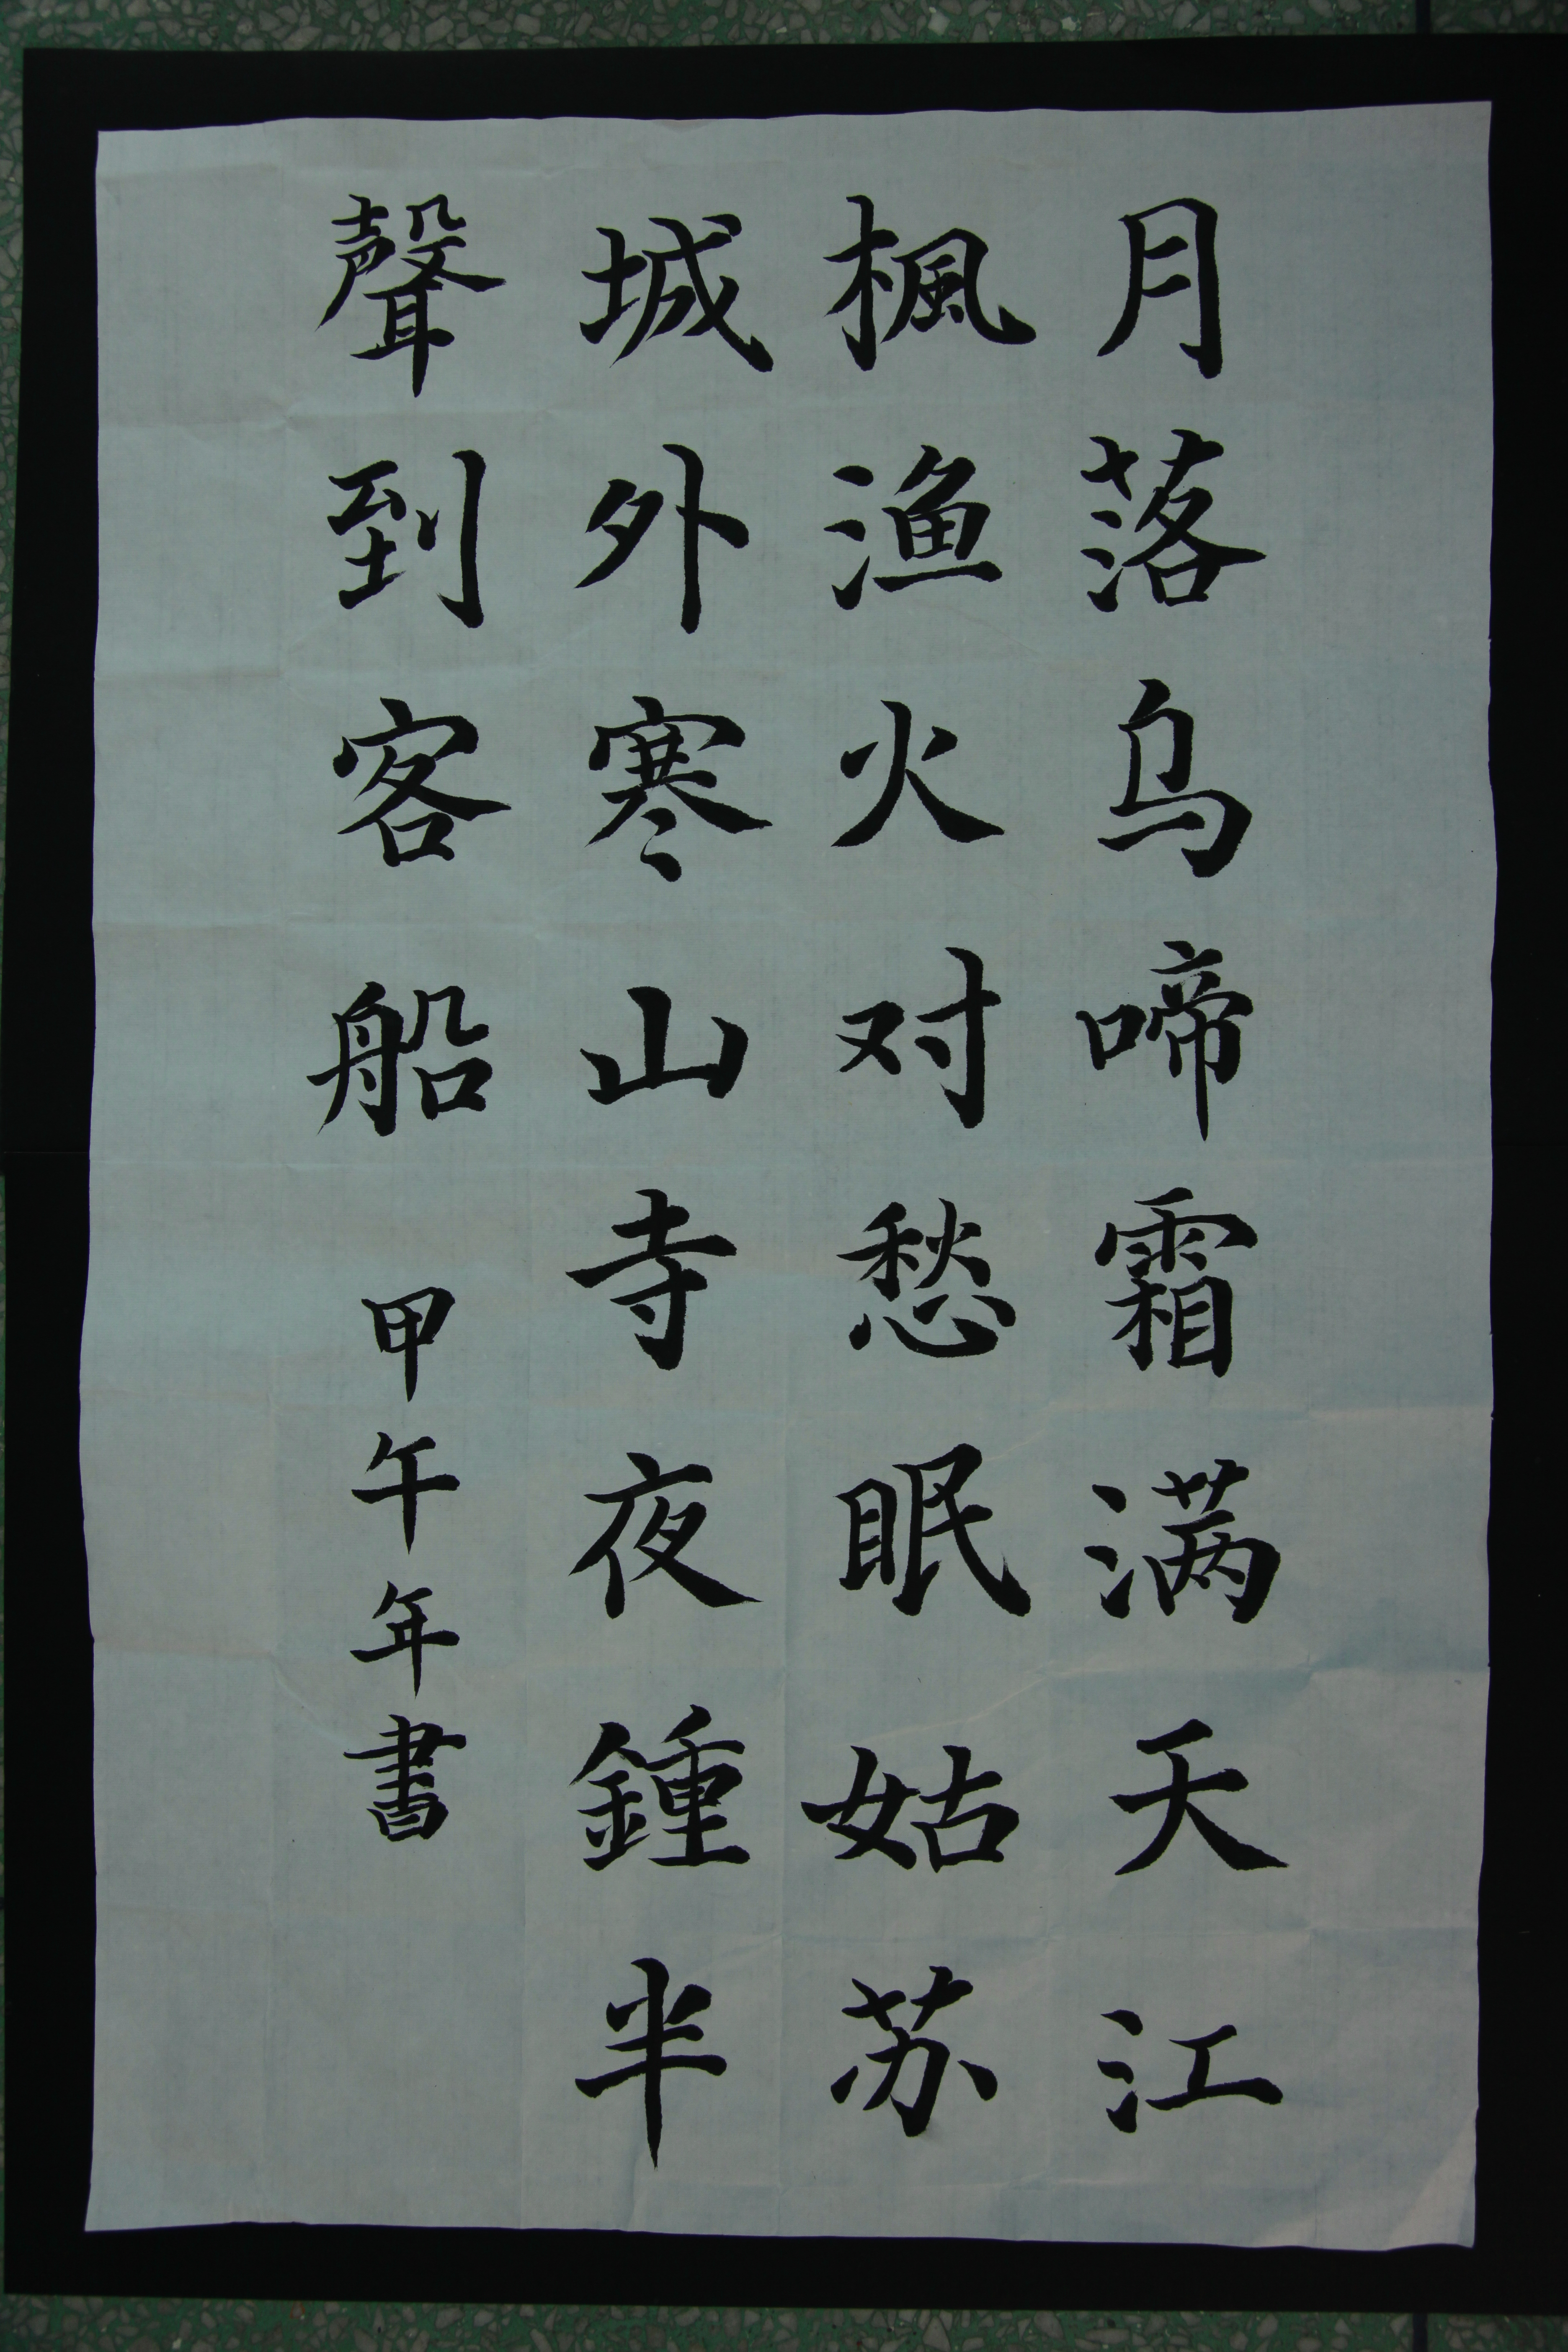 月落乌啼霜满天江
楓渔火对愁眠姑苏
城外寒山寺夜鍾半
聲到客船 甲午年書